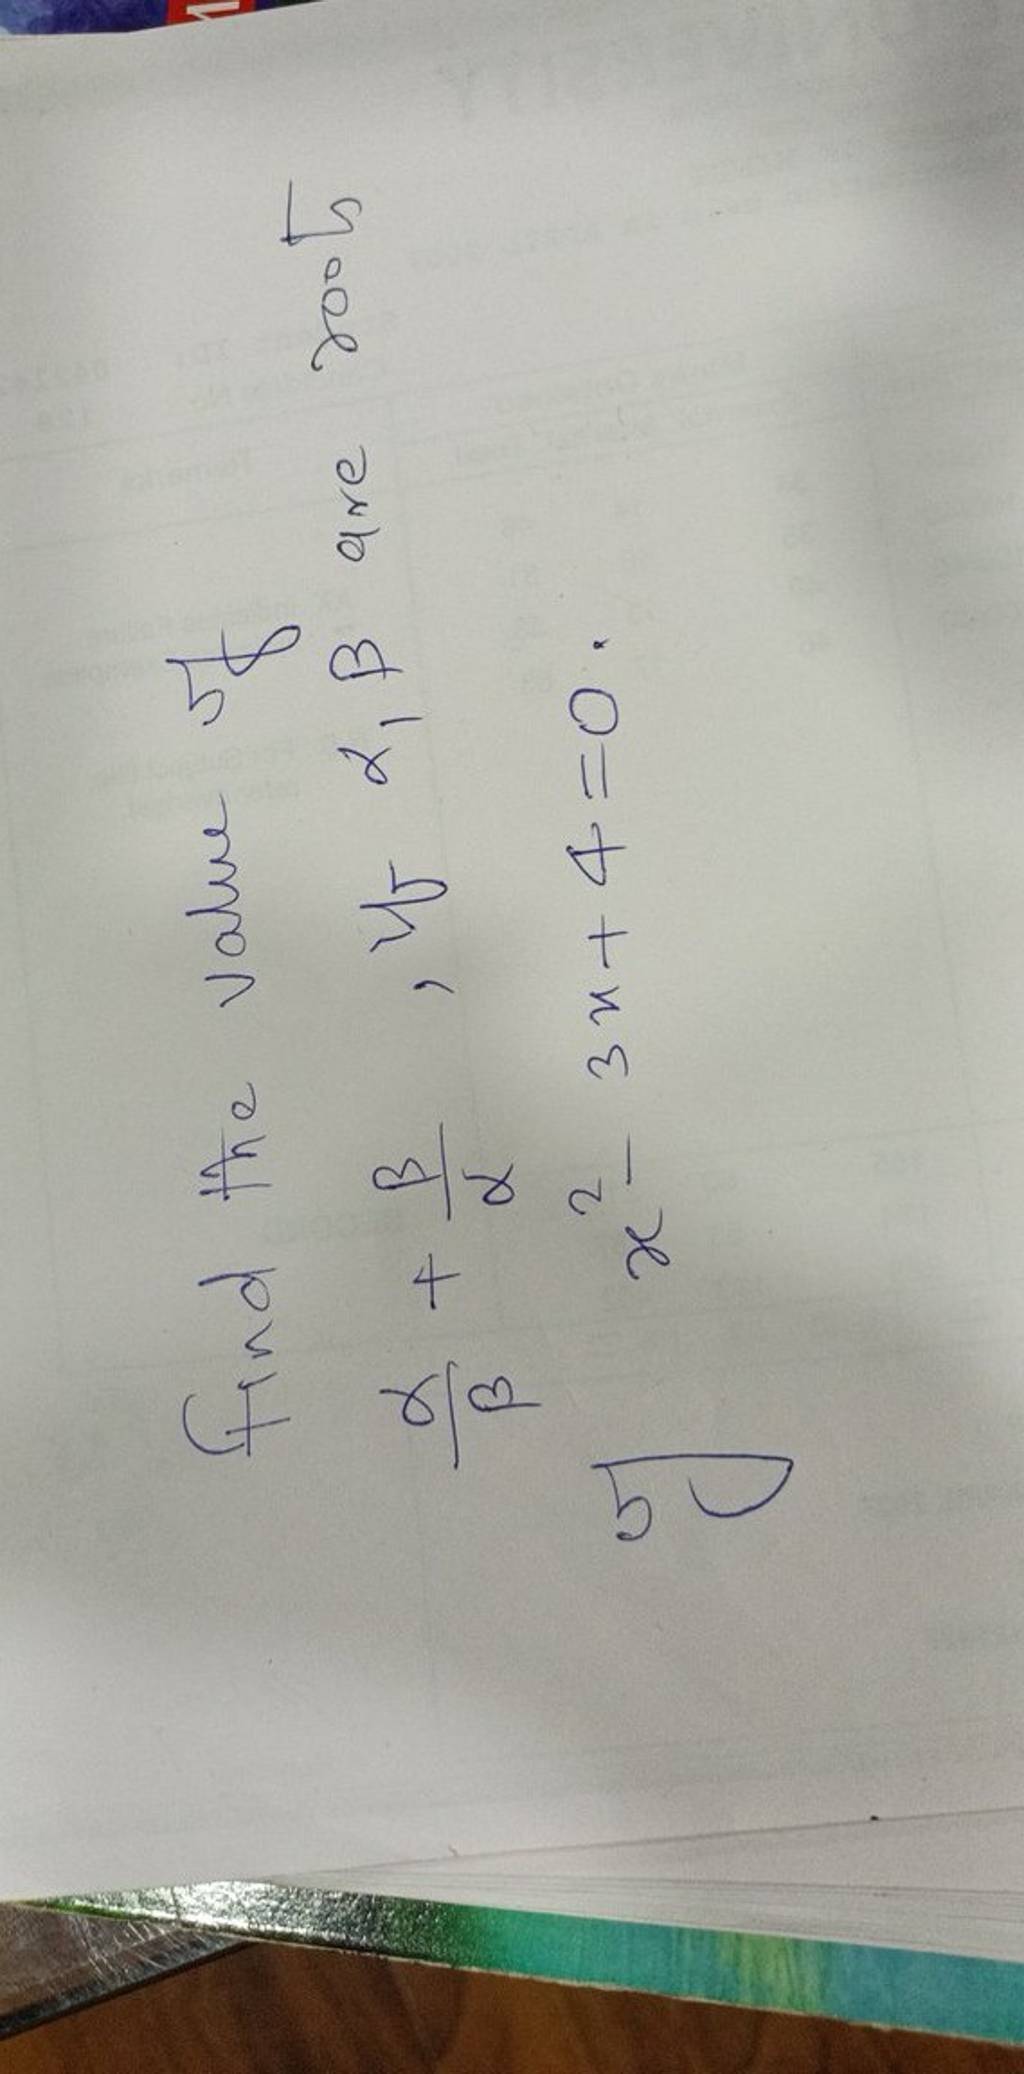 Find the value of
α/β + β/α , if α, β are roots
of x² - 3x + 4 = 0.